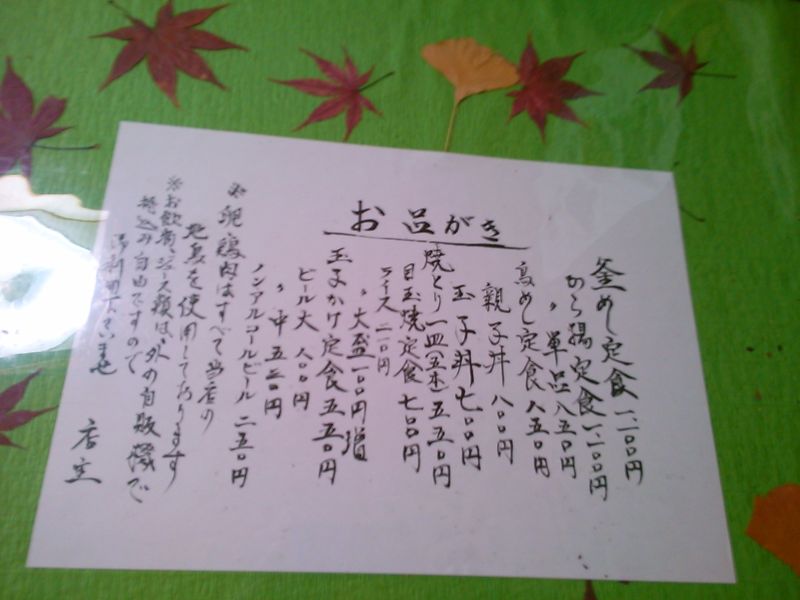 お品がき
釜めし定食 一、一〇〇円
から揚定食 一、一〇〇円
〃 単品 八五〇円
鳥めし定食 八五〇円
親子丼 八〇〇円
玉子丼 七〇〇円
焼とり一皿(五本) 五五〇円
目玉焼定食 七〇〇円
ライス 二一〇円
〃 大盛 一〇〇円増
玉子かけ定食 五五〇円
ビール大 八〇〇円
〃 中 五五〇円
ノンアルコールビール 二五〇円
※卵、鶏肉はすべて当店の
地鳥を使用しております
※お飲物、ジュース類は、外の自販機で
持込み自由ですので
御利用下さいませ
店主